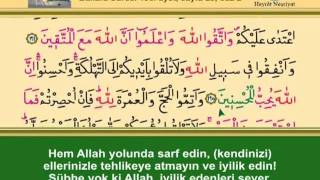 Hayrât Neşriyat
اعْتَدٰى عَلَيْكُمْ وَاتَّقُوا اللّٰهَ وَاعْلَمُٓوا اَنَّ اللّٰهَ مَعَ الْمُتَّق۪ينَ
وَاَنْفِقُوا ف۪ي سَب۪يلِ اللّٰهِ وَلَا تُلْقُوا بِاَيْد۪يكُمْ اِلَى التَّهْلُكَةِ وَاَحْسِنُوا اِنَّ
اللّٰهَ يُحِبُّ الْمُحْسِن۪ينَ وَاَتِمُّوا الْحَجَّ وَالْعُمْرَةَ لِلّٰهِ فَاِنْ اُحْصِرْتُمْ
Hem Allah yolunda sarf edin, (kendinizi)
ellerinizle tehlikeye atmayın ve iyilik edin!
Şübhe yok ki Allah, iyilik edenleri sever.